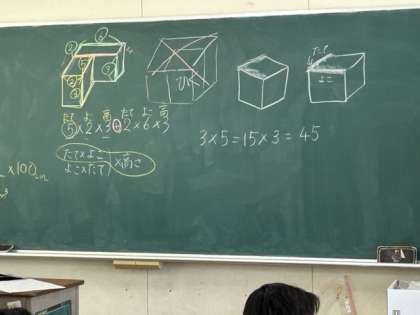 たて よこ 高 たて よこ 高
5×2×3+2×6×3
たて×よこ
よこ×たて
×高さ
×100cm
たて
よこ
3×5=15×3=45